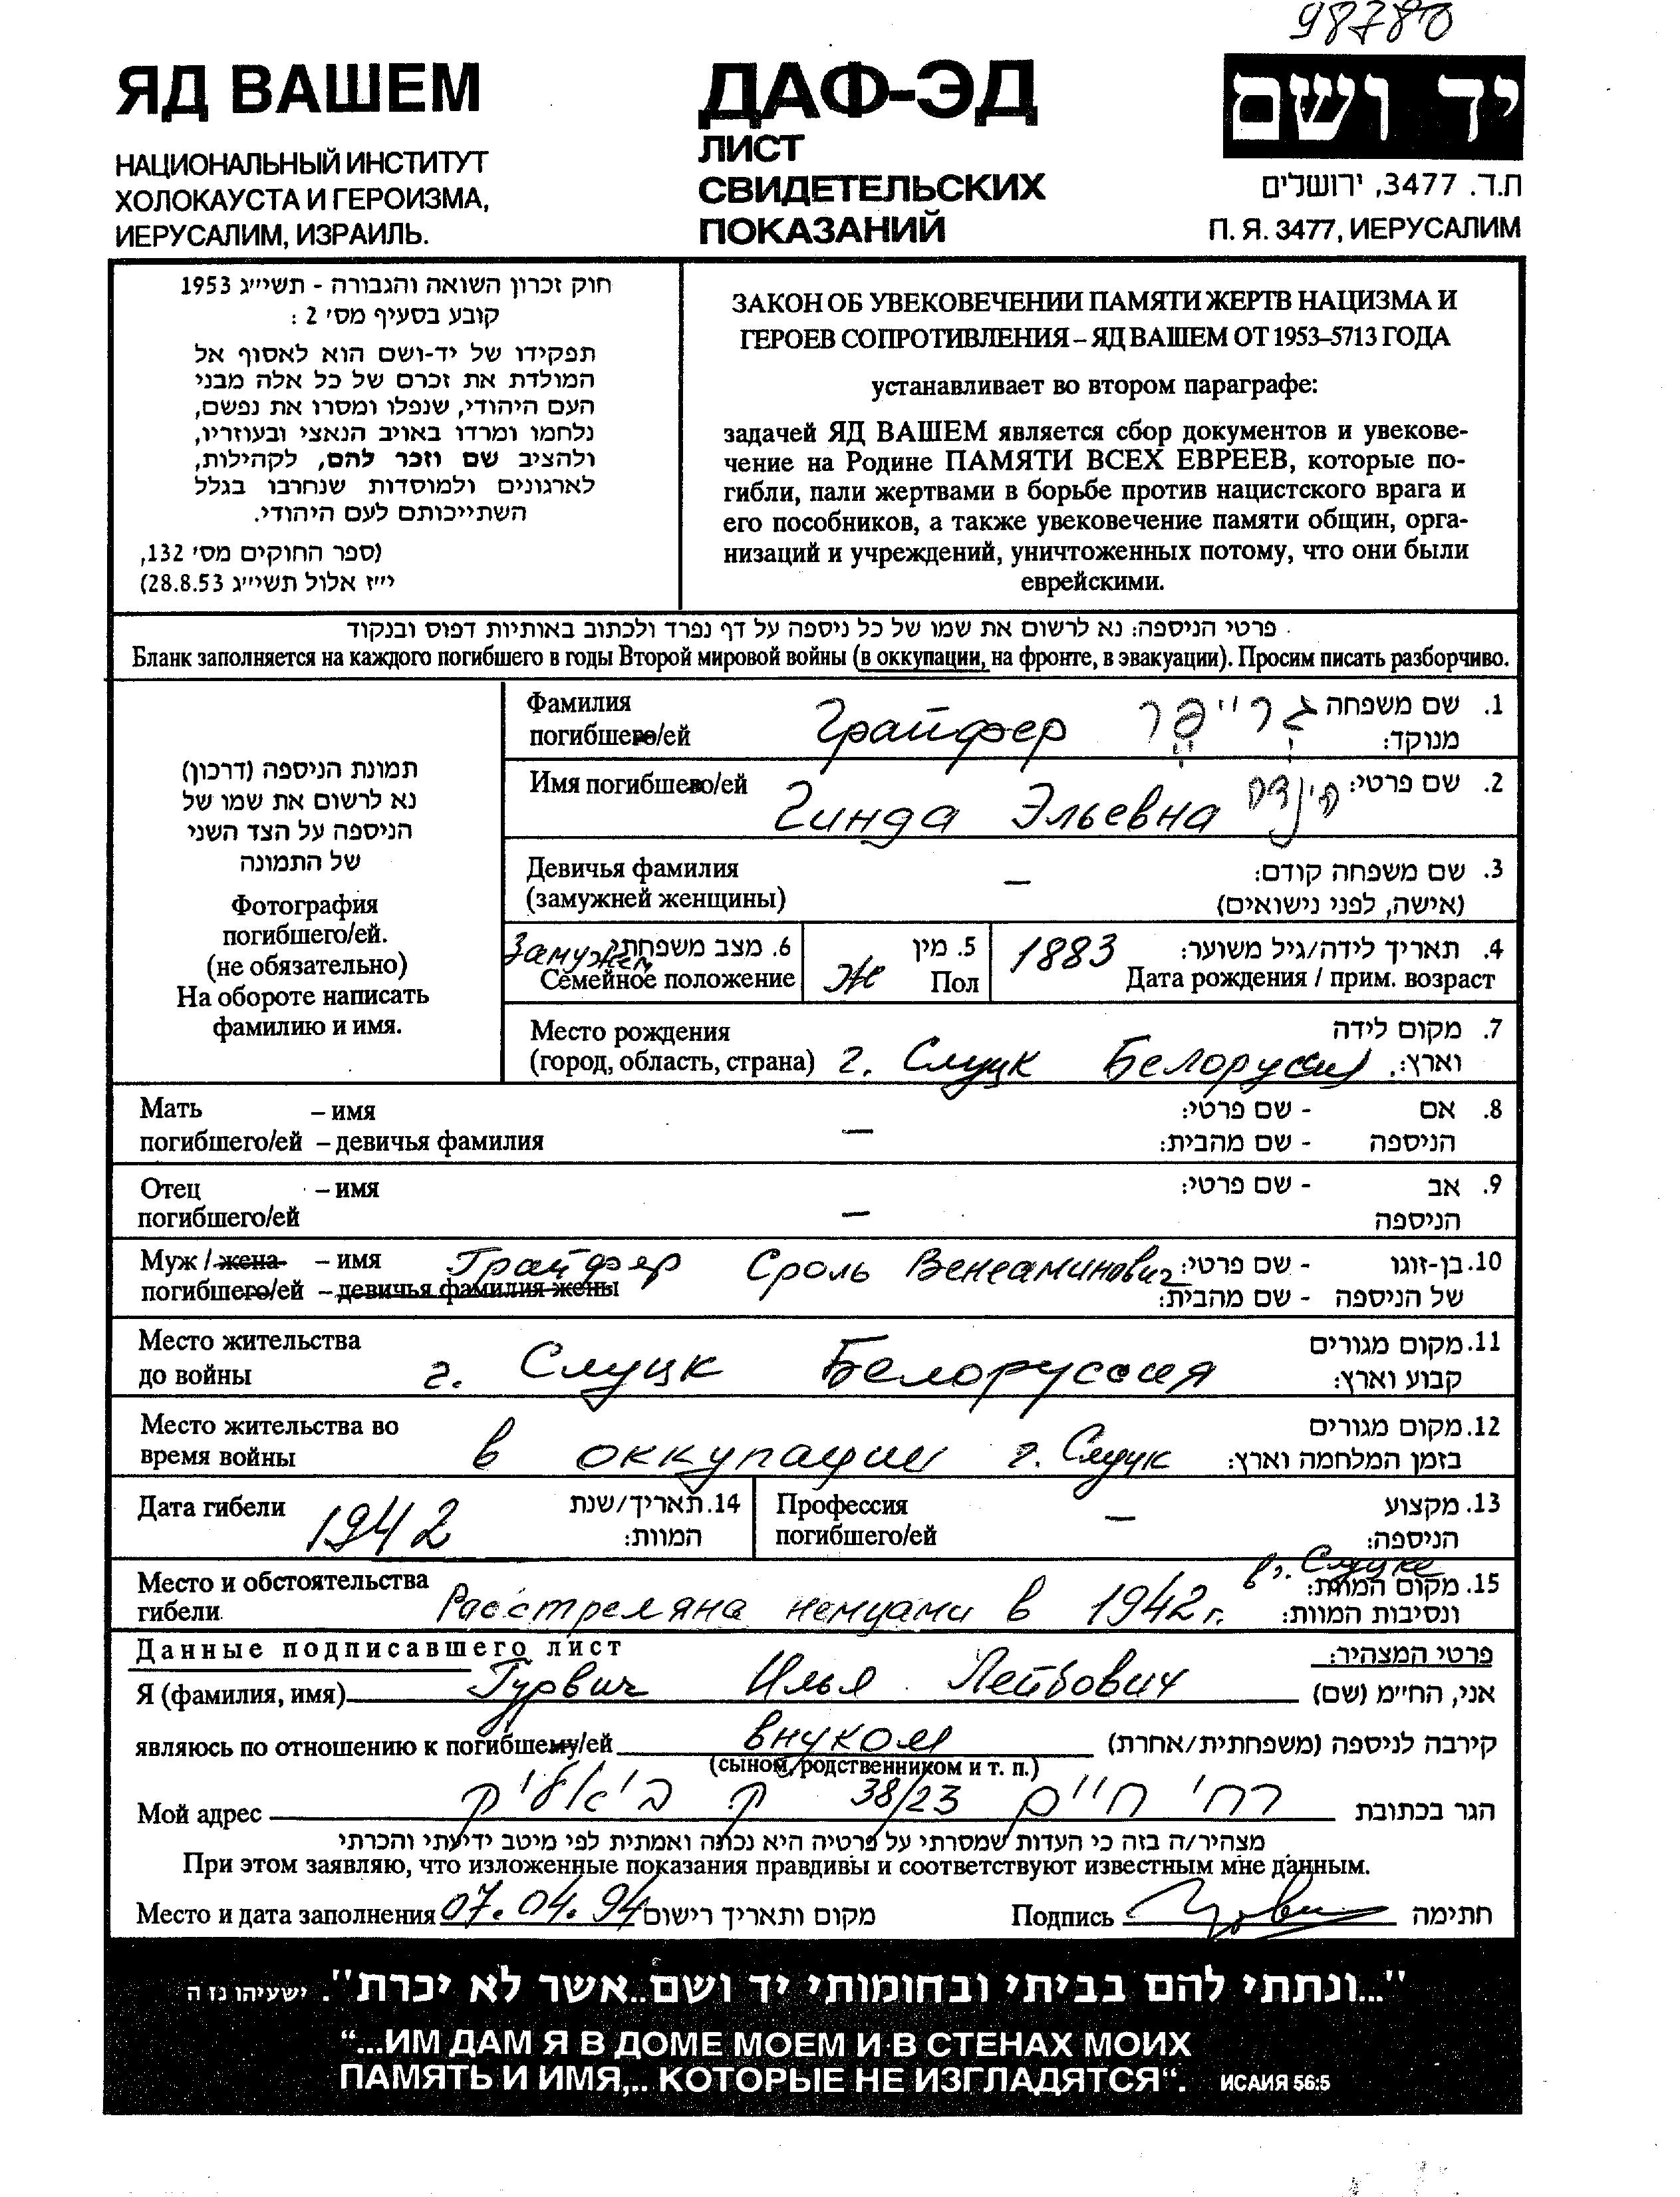 98780
ЯД ВАШЕМ
НАЦИОНАЛЬНЫЙ ИНСТИТУТ
ХОЛОКАУСТА И ГЕРОИЗМА,
ИЕРУСАЛИМ, ИЗРАИЛЬ.
ДАФ-ЭД
ЛИСТ
СВИДЕТЕЛЬСКИХ
ПОКАЗАНИЙ
יד ושם
ת.ד. 3477, ירושלים
П. Я. 3477, ИЕРУСАЛИМ
חוק זכרון השואה והגבורה - תשי״ג 1953
קובע בסעיף מס׳ 2 :
תפקידו של יד-ושם הוא לאסוף אל
המולדת את זכרם של כל אלה מבני
העם היהודי, שנפלו ומסרו את נפשם,
נלחמו ומרדו באויב הנאצי ובעוזריו,
ולהציב שם וזכר להם, לקהילות,
לארגונים ולמוסדות שנחרבו בגלל
השתייכותם לעם היהודי.
(ספר החוקים מס׳ 132,
י״ז אלול תשי״ג 28.8.53)
ЗАКОН ОБ УВЕКОВЕЧЕНИИ ПАМЯТИ ЖЕРТВ НАЦИЗМА И
ГЕРОЕВ СОПРОТИВЛЕНИЯ – ЯД ВАШЕМ ОТ 1953–5713 ГОДА
устанавливает во втором параграфе:
задачей ЯД ВАШЕМ является сбор документов и увекове-
чение на Родине ПАМЯТИ ВСЕХ ЕВРЕЕВ, которые по-
гибли, пали жертвами в борьбе против нацистского врага и
его пособников, а также увековечение памяти общин, орга-
низаций и учреждений, уничтоженных потому, что они были
еврейскими.
פרטי הניספה: נא לרשום את שמו של כל ניספה על דף נפרד ולכתוב באותיות דפוס ובנקוד
Бланк заполняется на каждого погибшего в годы Второй мировой войны (в оккупации, на фронте, в эвакуации). Просим писать разборчиво.
תמונת הניספה (דרכון)
נא לרשום את שמו של
הניספה על הצד השני
של התמונה
Фотография
погибшего/ей.
(не обязательно)
На обороте написать
фамилию и имя.
Фамилия
погибшего/ей Грайфер גרייפר
1. שם משפחה
מנוקד:
Имя погибшего/ей Гинда Эльевна גינדה 2. שם פרטי:
Девичья фамилия – 3. שם משפחה קודם:
(замужней женщины) (אישה, לפני נישואים)
Замужем 6. מצב משפחתי 5. מין 1883 4. תאריך לידה/גיל משוער:
Семейное положение Ж Пол Дата рождения / прим. возраст
Место рождения 7. מקום לידה
(город, область, страна) г. Слуцк Белоруссия וארץ:
Мать – имя - שם פרטי: 8. אם
погибшего/ей – девичья фамилия – - שם מהבית: הניספה
Отец – имя - שם פרטי: 9. אב
погибшего/ей – הניספה
Муж / жена – имя Грайфер Сроль Вениаминович - שם פרטי: 10. בן-זוגו
погибшего/ей – девичья фамилия жены - שם מהבית: של הניספה
Место жительства 11. מקום מגורים
до войны г. Слуцк Белоруссия קבוע וארץ:
Место жительства во 12. מקום מגורים
время войны в оккупации г. Слуцк בזמן המלחמה וארץ:
Дата гибели 1942 14. תאריך/שנת
המוות:
Профессия – 13. מקצוע
погибшего/ей הניספה:
в г. Слуцке
Место и обстоятельства 15. מקום המוות:
гибели Расстреляна немцами в 1942 г. ונסיבות המוות:
Данные подписавшего лист פרטי המצהיר:
Я (фамилия, имя) Гурвич Илья Лейбович אני, החי״מ (שם)
являюсь по отношению к погибшему/ей внуком קירבה לניספה (משפחתית/אחרת)
(сыном, родственником и т. п.)
Мой адрес רח׳ חיים 38/23 ק. ביאליק הגר בכתובת
מצהיר/ה בזה כי העדות שמסרתי על פרטיה היא נכונה ואמתית לפי מיטב ידיעתי והכרתי
При этом заявляю, что изложенные показания правдивы и соответствуют известным мне данным.
Место и дата заполнения 07.04.94 מקום ותאריך רישום Подпись חתימה
"...ונתתי להם בביתי ובחומותי יד ושם..אשר לא יכרת". ישעיהו נז ה
“...ИМ ДАМ Я В ДОМЕ МОЕМ И В СТЕНАХ МОИХ
ПАМЯТЬ И ИМЯ,.. КОТОРЫЕ НЕ ИЗГЛАДЯТСЯ“. ИСАИЯ 56:5